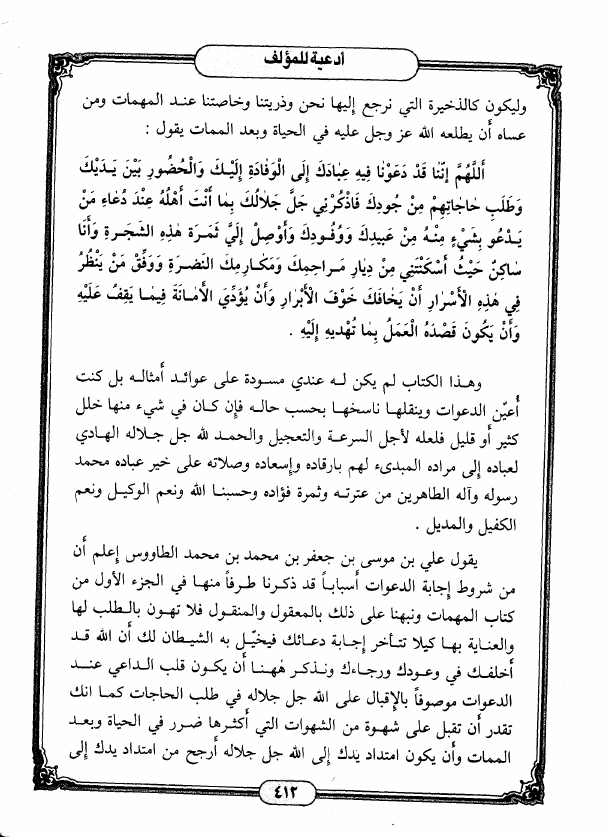 أدعية للمؤلف
وليكون كالذخيرة التي نرجع إليها نحن وذريتنا وخاصتنا عند المهمات ومن
عساه أن يطلعه الله عز وجل عليه في الحياة وبعد الممات يقول :
أَللَّهُمَّ إِنَّنا قَدْ دَعَوْنا فِيهِ عِبادَكَ إِلَى الْوَفادَةِ إِلَيْكَ وَالْحُضُورِ بَيْنَ يَدَيْكَ
وَطَلَبِ حاجاتِهِمْ مِنْ جُودِكَ فَاذْكُرْنِي جَلَّ جَلالُكَ بِما أَنْتَ أَهْلُهُ عِنْدَ دُعاءِ مَنْ
يَدْعُو بِشَيْءٍ مِنْهُ مِنْ عَبِيدِكَ وَوُفُودِكَ وَأَوْصِلْ إِلَيَّ ثَمَرَةَ هٰذِهِ الشَّجَرَةِ وَأَنَا
ساكِنٌ حَيْثُ أَسْكَنْتَنِي مِنْ دِيارِ مَراحِمِكَ وَمَكارِمِكَ النَضرَةِ وَوَفِّقْ مَنْ يَنْظُرُ
فِي هٰذِهِ الْأَسْرارِ أَنْ يَخافَكَ خَوْفَ الْأَبْرارِ وَأَنْ يُؤَدِّيَ الْأَمانَةَ فِيما يَقِفُ عَلَيْهِ
وَأَنْ يَكُونَ قَصْدُهُ الْعَمَلُ بِما تُهْدِيهِ إِلَيْهِ .
وهذا الكتاب لم يكن له عندي مسودة على عوائد أمثاله بل كنت
أُعيّن الدعوات وينقلها ناسخها بحسب حاله فإن كان في شيء منها خلل
كثير أو قليل فلعله لأجل السرعة والتعجيل والحمد لله جل جلاله الهادي
لعباده إلى مراده المبدىء لهم بارقاده وإسعاده وصلاته على خير عباده محمد
رسوله وآله الطاهرين من عترته وثمرة فؤاده وحسبنا الله ونعم الوكيل ونعم
الكفيل والمديل .
يقول علي بن موسى بن جعفر بن محمد بن محمد الطاووس إعلم أن
من شروط إجابة الدعوات أسباباً قد ذكرنا طرفاً منها في الجزء الأول من
كتاب المهمات ونبهنا على ذلك بالمعقول والمنقول فلا تهون بالطلب لها
والعناية بها كيلا تتأخر إجابة دعائك فيخيّل به الشيطان لك أن الله قد
أخلفك في وعودك ورجاءك ونذكر هٰهنا أن يكون قلب الداعي عند
الدعوات موصوفاً بالإقبال على الله جل جلاله في طلب الحاجات كما انك
تقدر أن تقبل على شهوة من الشهوات التي أكثرها ضرر في الحياة وبعد
الممات وأن يكون امتداد يدك إلى الله جل جلاله أرجح من امتداد يدك إلى
٤١٢